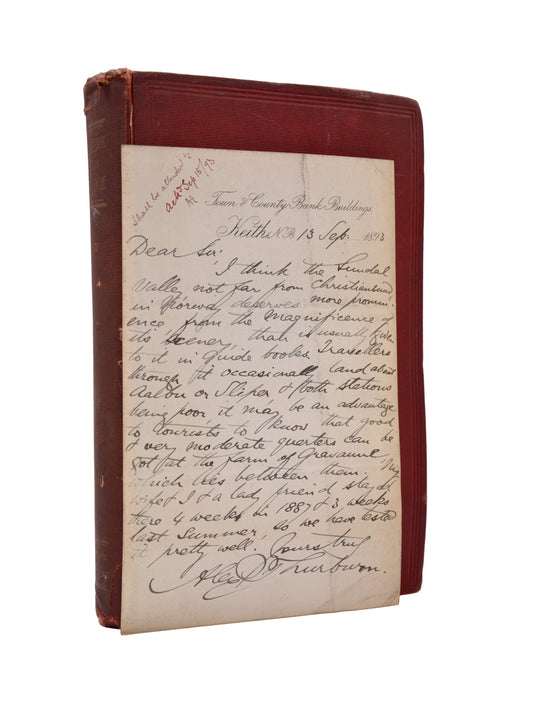 Shall be attended to
Ackd Sep 15/93
Town & County Bank Buildings,
Keith, N.B. 13 Sep. 1893
Dear Sir,
I think the Sundal
Valley not far from Christiansund
in Norway deserves more promin-
ence from the magnificence of
its scenery, than is usually give
to it in Guide books. Travellers
through it occasionally land about
Aalbu or Sliper & both stations
being poor it may be an advantage
to tourists to know that good
& very moderate quarters can be
got at the farm of Gravaune
which lies between them. My
wife & I & a lady friend stayed
there 4 weeks in 1887 & 3 weeks
last summer, so we have tested
it pretty well. Yours truly
Thurburn.